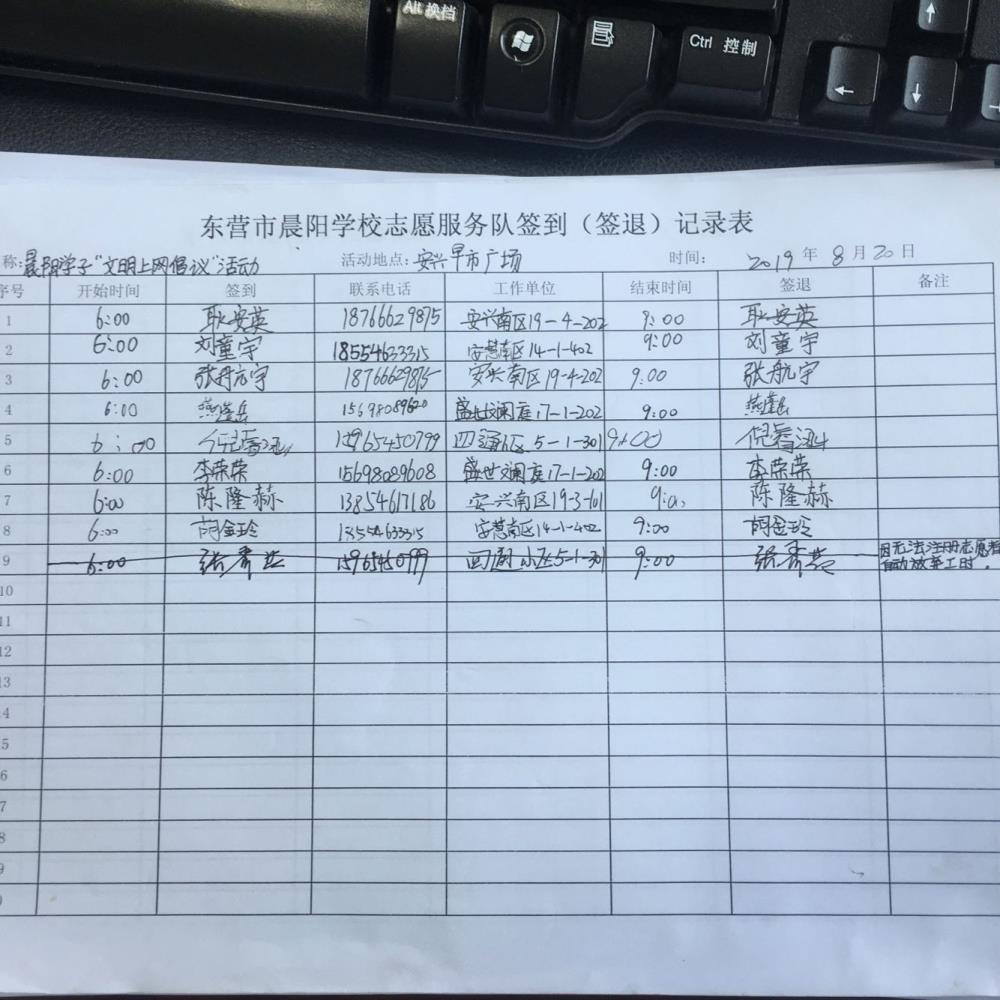 Alt 换档
Ctrl 控制
东营市晨阳学校志愿服务队签到（签退）记录表
称:晨阳学子"文明上网倡议"活动 活动地点:安兴早市广场 时间: 2019 年 8 月 20 日
序号 开始时间 签到 联系电话 工作单位 结束时间 签退 备注
1 6:00 耿安英 18766629875 安兴南区19-4-202 9:00 耿安英
2 6:00 刘童宇 18554633315 安慧南区14-1-402 9:00 刘童宇
3 6:00 张航宇 18766629875 安兴南区19-4-202 9:00 张航宇
4 6:00 15698089620 盛世澜庭17-1-202 9:00
5 6:00 倪 15965450799 5-1-301 9:00 倪
6 6:00 李荣荣 15698089608 盛世澜庭17-1-202 9:00 李荣荣
7 6:00 陈隆赫 13854617186 安兴南区19-3-101 9:00 陈隆赫
8 6:00 胡金玲 18554633315 安慧南区14-1-402 9:00 胡金玲
9 6:00 张秀芸 15965450799 5-1-301 9:00 张秀芸 因无法注册志愿者
自动放弃工时。
10
11
12
13
4
5
6
7
8
9